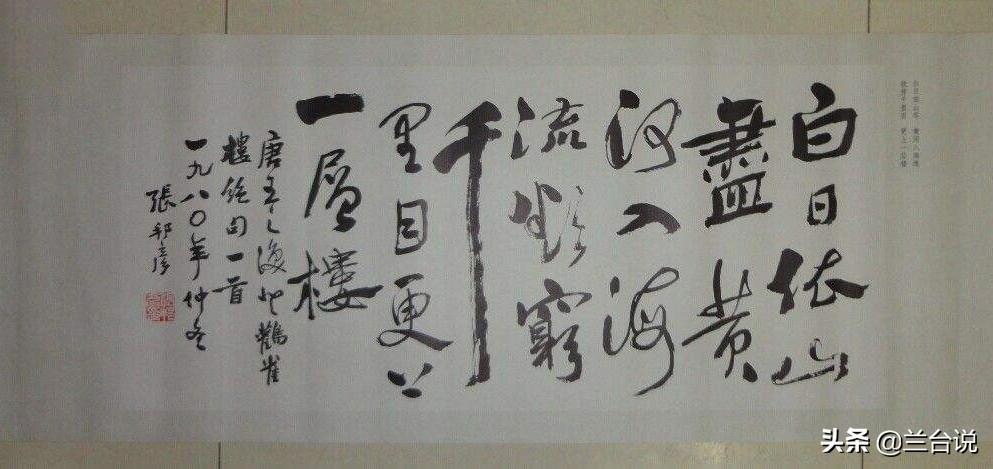 白日依山
盡黄
河入海
流欲窮
千
里目更上
一層樓
唐王之渙登鸛雀
樓絶句一首
一九八〇年仲冬
張邦彦
头条 @兰台说